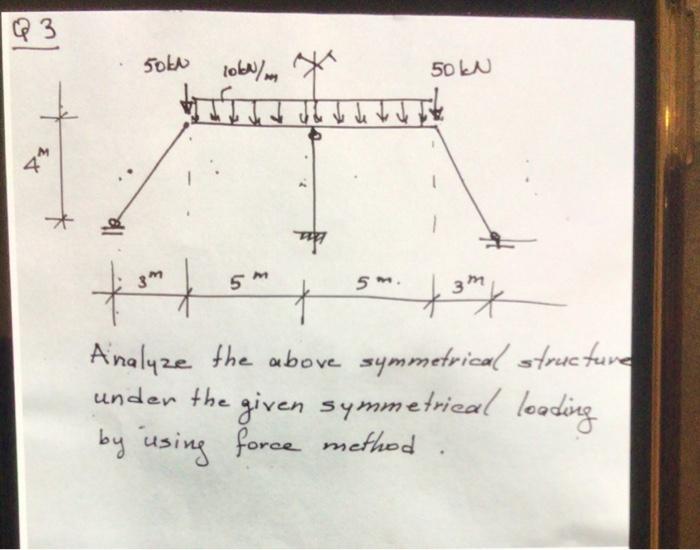 Q3
50kN 10kN/m 50kN
4m
3m 5m 5m. 3m
Analyze the above symmetrical structure
under the given symmetrical loading
by using force method.